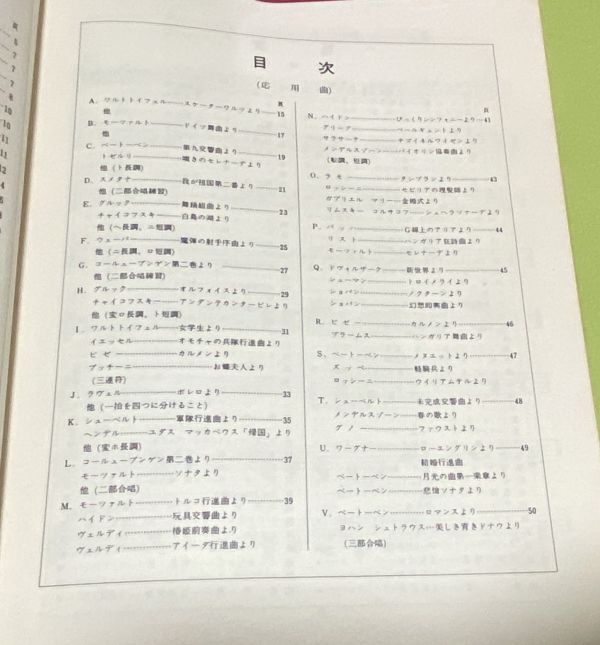 頁
5
7
7
7
8
10
10
11
11
12
目　次
（応　用　曲）
頁
A．ワルトトイフェル……スケーターワルツより……15
他
B．モーツァルト……ドイツ舞曲より……17
他
C．ベートーベン……第九交響曲より……19
トゼルリ……嘆きのセレナーデより
他（ト長調）
D．スメタナ……我が祖国第二番より……21
他（二部合唱練習）
E．グルック……舞踊組曲より……23
チャイコフスキー……白鳥の湖より
他（ヘ長調，ニ短調）
F．ウェーバー……魔弾の射手序曲より……25
他（ニ長調，ロ短調）
G．コールユーブンゲン第二巻より……27
他（二部合唱練習）
H．グルック……オルフォイスより……29
チャイコフスキー……アンダンテカンタービレより
他（変ロ長調，ト短調）
I．ワルトトイフェル……女学生より……31
イエッセル……オモチャの兵隊行進曲より
ビゼー……カルメンより
プッチーニ……お蝶夫人より
（三連符）
J．ラヴェル……ボレロより……33
他（一拍を四つに分けること）
K．シューベルト……軍隊行進曲より……35
ヘンデル……ユダス　マッカベウス「帰国」より
他（変ホ長調）
L．コールユーブンゲン第二巻より……37
モーツァルト……ソナタより
他（二部合唱）
M．モーツァルト……トルコ行進曲より……39
ハイドン……玩具交響曲より
ヴェルディ……椿姫前奏曲より
ヴェルディ……アイーダ行進曲より
頁
N．ハイドン……びっくりシンフォニーより……41
グリーグ……ペールギュントより
サラサーテ……チゴイネルワイゼンより
メンデルスゾーン……バイオリン協奏曲より
（転調，短調）
O．ラモー……タンブランより……43
ロッシーニ……セビリアの理髪師より
ガブリエル　マリー……金婚式より
リムスキー　コルサコフ……シェヘラツァーデより
P．バッハ……G線上のアリアより……44
リスト……ハンガリア狂詩曲より
モーツァルト……セレナーデより
Q．ドヴォルザーク……新世界より……45
シューマン……トロイメライより
ショパン……ノクターンより
ショパン……幻想即興曲より
R．ビゼー……カルメンより……46
ブラームス……ハンガリア舞曲より
S．ベートーベン……メヌエットより……47
ズッペ……軽騎兵より
ロッシーニ……ウイリアムテルより
T．シューベルト……未完成交響曲より……48
メンデルスゾーン……春の歌より
グノー……ファウストより
U．ワーグナー……ローエングリンより……49
結婚行進曲
ベートーベン……月光の曲第一楽章より
ベートーベン……悲愴ソナタより
V．ベートーベン……ロマンスより……50
ヨハン　シュトラウス…美しき青きドナウより
（三部合唱）